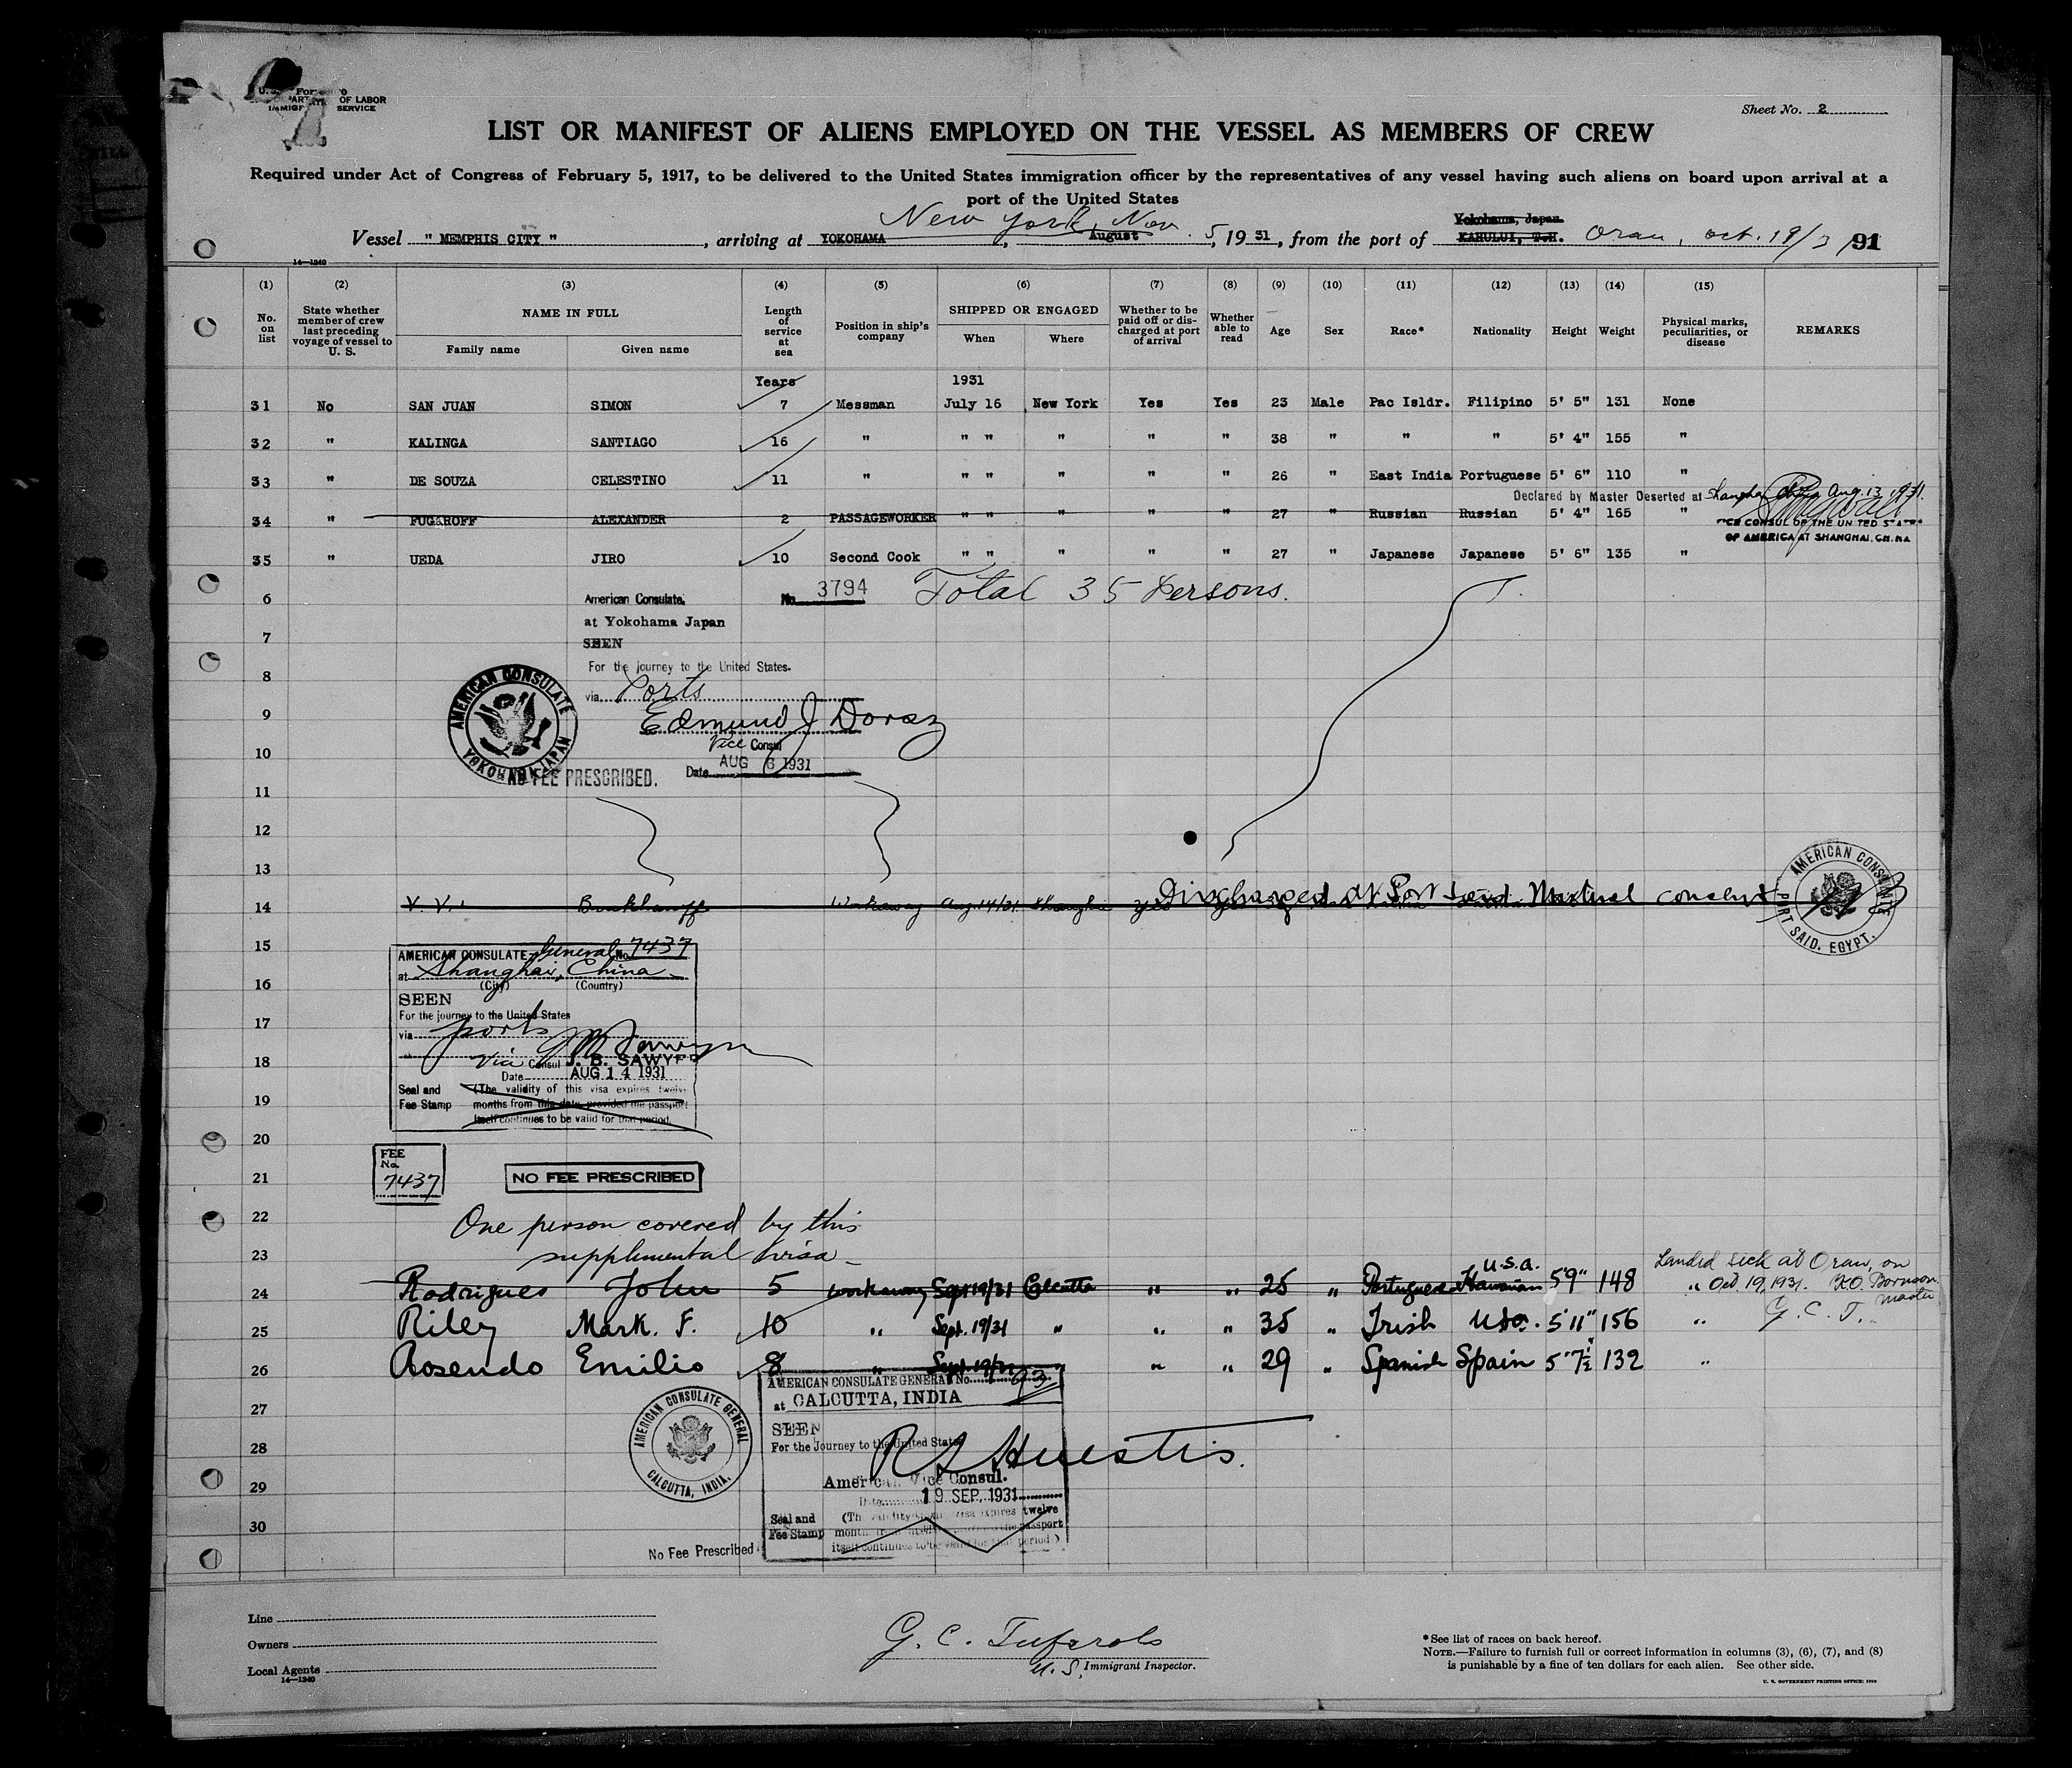 OF LABOR
SERVICE
Sheet No. 2
LIST OR MANIFEST OF ALIENS EMPLOYED ON THE VESSEL AS MEMBERS OF CREW
Required under Act of Congress of February 5, 1917, to be delivered to the United States immigration officer by the representatives of any vessel having such aliens on board upon arrival at a
port of the United States
New York, Nov. 5 Yokohama, Japan.
Vessel " MEMPHIS CITY ", arriving at YOKOHAMA, August, 19 31, from the port of KAHULUI, T.H. Oran, oct. 19/31 91
14—1240
(1) (2) (3) (4) (5) (6) (7) (8) (9) (10) (11) (12) (13) (14) (15)
No. on list State whether member of crew last preceding voyage of vessel to U. S. NAME IN FULL Family name Given name Length of service at sea Position in ship's company SHIPPED OR ENGAGED When Where Whether to be paid off or discharged at port of arrival Whether able to read Age Sex Race* Nationality Height Weight Physical marks, peculiarities, or disease REMARKS
Years 1931
31 No SAN JUAN SIMON 7 Messman July 16 New York Yes Yes 23 Male Pac Isldr. Filipino 5' 5" 131 None
32 " KALINGA SANTIAGO 16 " " " " " " 38 " " " 5' 4" 155 "
33 " DE SOUZA CELESTINO 11 " " " " " " 26 " East India Portuguese 5' 6" 110 "
Declared by Master Deserted at Shanghai China Aug. 13, 1931.
34 " FUGAROFF ALEXANDER 2 PASSAGEWORKER " " " " " 27 " Russian Russian 5' 4" 165 "
VICE CONSUL OF THE UNITED STATES
OF AMERICA AT SHANGHAI, CHINA
35 " UEDA JIRO 10 Second Cook " " " " " 27 " Japanese Japanese 5' 6" 135 "
6 American Consulate, No. 3794 Total 35 Persons.
at Yokohama Japan
7 SEEN
For the journey to the United States.
8 via Ports
9 Edmund J Dorsz
Vice Consul
10 Date AUG 6 1931
AMERICAN CONSULATE YOKOHAMA JAPAN
NO FEE PRESCRIBED.
11
12
13
14 Workaway Aug. 14/31 Shanghai yes Discharged at Port Said Mutual consent
AMERICAN CONSULATE PORT SAID, EGYPT.
15 AMERICAN CONSULATE General No. 7437
at Shanghai, China
16 (City) (Country)
SEEN
For the journey to the United States
17 via ports
18 Vice Consul J. B. SAWYER
Date AUG 14 1931
Seal and Fee Stamp (The validity of this visa expires twelve
19 months from this date provided the passport
itself continues to be valid for that period
20
FEE No. 7437
21 NO FEE PRESCRIBED
22 One person covered by this
23 supplemental visa
U.S.A. Landed sick at Oran, on
24 Rodrigues John 5 workaway Sept 19/31 Calcutta " " 25 " Portuguese Hawaiian 5'9" 148 " Oct 19, 1931. Master
25 Riley Mark. F. 10 " Sept. 19/31 " " " 35 " Irish USA. 5'11" 156 " G. C. T.
26 Rosendo Emilio 8 " Sept. 19/31 " " " 29 " Spanish Spain 5'7½ 132 "
AMERICAN CONSULATE GENERAL No. 93
27 at CALCUTTA, INDIA
SEEN
28 For the Journey to the United States
R S Huestis.
American Vice Consul.
29 Date 19 SEP. 1931
AMERICAN CONSULATE GENERAL CALCUTTA, INDIA.
Seal and Fee Stamp (The validity of this visa expires twelve
30 months from the passport
itself continues to be valid for that period)
No Fee Prescribed
Line
Owners
Local Agents
14—1240
G. C. Tuferolo
U. S. Immigrant Inspector.
*See list of races on back hereof.
NOTE.—Failure to furnish full or correct information in columns (3), (6), (7), and (8)
is punishable by a fine of ten dollars for each alien. See other side.
U. S. GOVERNMENT PRINTING OFFICE: